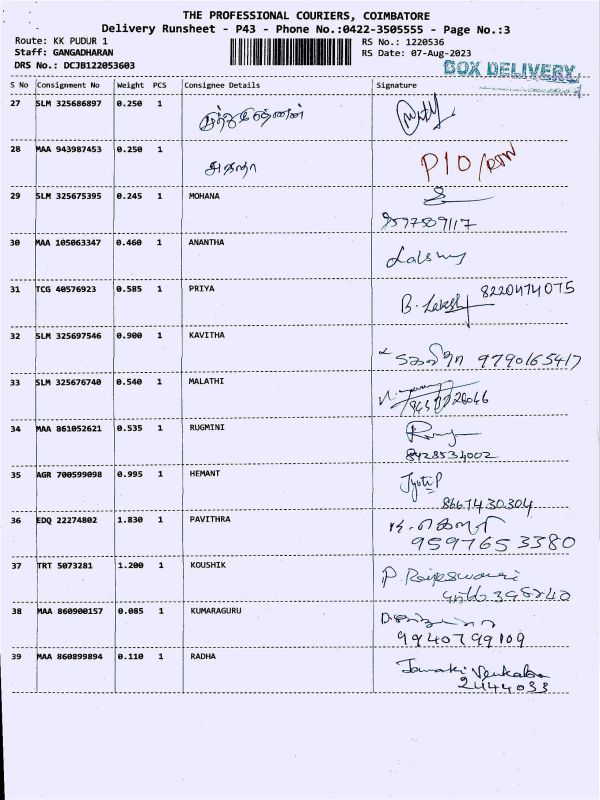 THE PROFESSIONAL COURIERS, COIMBATORE
Delivery Runsheet - P43 - Phone No.:0422-3505555 - Page No.:3
Route: KK PUDUR 1 RS No.: 1220536
Staff: GANGADHARAN RS Date: 07-Aug-2023
DRS No.: DCJB122053603 BOX DELIVERY
S No Consignment No Weight PCS Consignee Details Signature
27 SLM 325686897 0.250 1
28 MAA 943987453 0.250 1 P10/RTN
29 SLM 325675395 0.245 1 MOHANA
9597509117
30 MAA 105063347 0.460 1 ANANTHA
31 TCG 40576923 0.585 1 PRIYA 8220474075
32 SLM 325697546 0.900 1 KAVITHA
9790165417
33 SLM 325676740 0.540 1 MALATHI
34 MAA 861052621 0.535 1 RUGMINI
8428534002
35 AGR 700599098 0.995 1 HEMANT Jyoti P
8667430304
36 EDQ 22274802 1.830 1 PAVITHRA
9597653380
37 TRT 5073281 1.200 1 KOUSHIK
38 MAA 860900157 0.085 1 KUMARAGURU
9940799109
39 MAA 860899894 0.110 1 RADHA Janaki Venkata
2444033